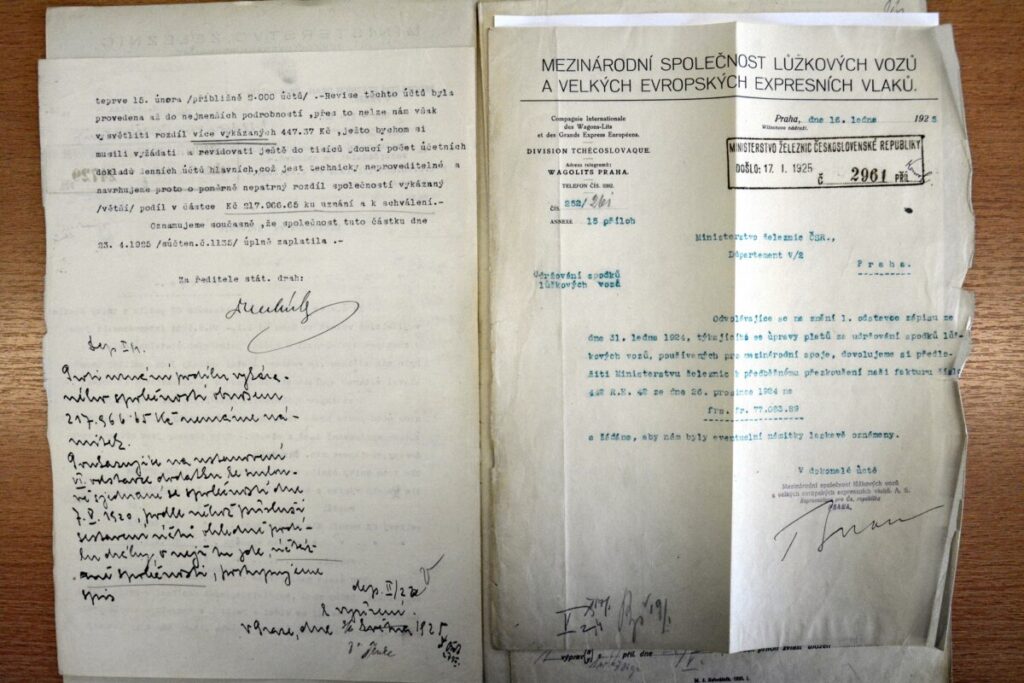 teprve 15. února /přibližně 5.000 účtů/ .-Revise těchto účtů byla
provedena až do nejmenších podrobností ,přes to nelze nám však
vysvětliti rozdíl více vykázaných 447.37 Kč ,ježto bychom si
musili vyžádati a revidovati ještě do tisíců jdoucí počet účetních
dokladů denních účtů hlavních,což jest technicky neproveditelné a
navrhujeme proto o poměrně nepatrný rozdíl společností vykázaný
/větší/ podíl v částce Kč 217.966.65 ku uznání a k schválení.-
Oznamujeme současně ,že společnost tuto částku dne
23. 4.1925 /súčten.č.1135/ úplně zaplatila .-
Za ředitele stát. drah:
Proti uznání podílu vykáza-
ného společností obnosem
217.966.65 Kč nemáme ná-
mitek.
Poukazujíce na ustanovení
VI. odstavce dodatku ke smlou-
vě sjednané se společností dne
1920, podle něhož přísluší
sestavení účtů ohledně podí-
lu dráhy, v nejž tu jde,
společnosti, postupujeme
spis
dep. II/22a
k vyřízení.
v Praze, dne 1925
MEZINÁRODNÍ SPOLEČNOST LŮŽKOVÝCH VOZŮ
A VELKÝCH EVROPSKÝCH EXPRESNÍCH VLAKŮ.
Compagnie Internationale
des Wagons-Lits
et des Grands Express Européens.
DIVISION TCHÉCOSLOVAQUE.
Adresa telegramů:
WAGOLITS PRAHA.
TELEFON ČÍS.
ČÍS. 252/261
ANNEXE 15 příloh
Praha, dne 16. ledna 1925
Wilsonovo nádraží.
MINISTERSTVO ŽELEZNIC ČESKOSLOVENSKÉ REPUBLIKY
DOŠLO: 17. I. 1925
Č 2961 PŘÍL.
Ministerstvo železnic ČSR.,
Département V/2
Praha.
Udržování spodků
lůžkových vozů
Odvolávajíce se na znění 1. odstavce zápisu ze
dne 31. ledna 1924, týkajícího se úpravy platů za udržování spodků lůž-
kových vozů, používaných pro mezinárodní spoje, dovolujeme si předlo-
žiti Ministerstvu železnic k předběžnému přezkoušení naši fakturu číslo
442 R.E. 42 ze dne 26. prosince 1924 na
frs. fr. 77.083.89
a žádáme, aby nám byly eventuelní námitky laskavě oznámeny.
V dokonalé úctě
Mezinárodní společnost lůžkových vozů
a velkých evropských expresních vlaků. A. S.
Représentation pro čs. republiku
PRAHA.